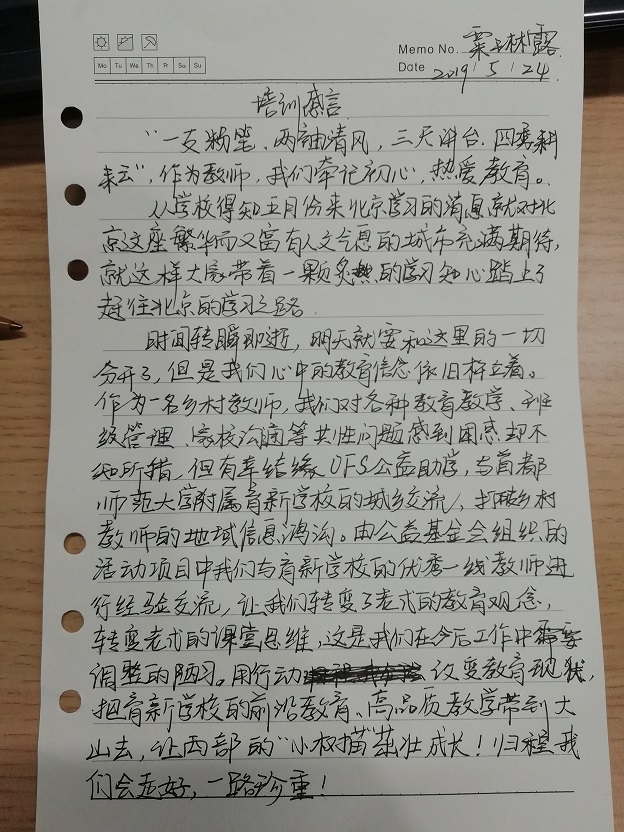 Memo No. 粟玉林露
Mo Tu We Th Fr Sa Su
Date 2019 / 5 / 24
培训感言
“一支粉笔、两袖清风，三尺讲台、四季耕
耘”，作为教师，我们牢记初心，热爱教育。
从学校得知五月份来北京学习的消息就对北
京这座繁华而又富有人文气息的城市充满期待，
就这样大家带着一颗炙热的学习知心踏上了
赶往北京的学习之路.
时间转瞬即逝，明天就要和这里的一切
分开了，但是我们心中的教育信念依旧树立着。
作为一名乡村教师，我们对各种教育教学、班
级管理、家校沟通等共性问题感到困惑却不
知所措，但有幸结缘UFS公益助学，与首都
师范大学附属育新学校的城乡交流，打破乡村
教师的地域信息鸿沟。由公益基金会组织的
活动项目中我们与育新学校的优秀一线教师进
行经验交流，让我们转变了老式的教育观念，
转变老式的课堂思维，这是我们在今后工作中需要
调整的陋习。用行动改变教育现状，
把育新学校的前沿教育、高品质教学带到大
山去，让西部的“小树苗”茁壮成长！归程我
们会走好，一路珍重！